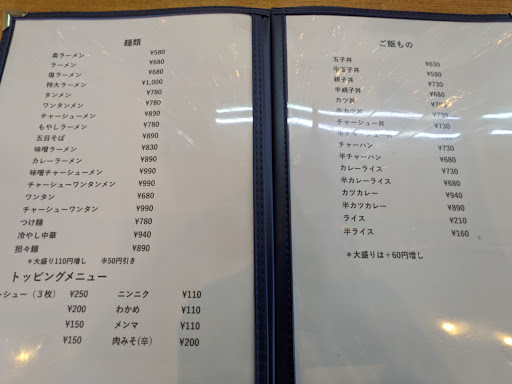 麺類
素ラーメン ¥580
ラーメン ¥680
塩ラーメン ¥680
特大ラーメン ¥1,000
タンメン ¥780
ワンタンメン ¥780
チャーシューメン ¥890
もやしラーメン ¥780
五目そば ¥890
味噌ラーメン ¥830
カレーラーメン ¥890
味噌チャーシューメン ¥990
チャーシューワンタンメン ¥990
ワンタン ¥680
チャーシューワンタン ¥990
つけ麺 ¥780
冷やし中華 ¥940
担々麺 ¥890
＊大盛り110円増し 半50円引き
トッピングメニュー
ーシュー（３枚） ¥250 ニンニク ¥110
¥200 わかめ ¥110
¥150 メンマ ¥110
¥150 肉みそ(辛) ¥200
ご飯もの
玉子丼 ¥630
半玉子丼 ¥580
親子丼 ¥730
半親子丼 ¥680
カツ丼
半カツ丼
チャーシュー丼 ¥730
¥730
チャーハン ¥730
半チャーハン ¥680
カレーライス ¥730
半カレーライス ¥680
カツカレー ¥940
半カツカレー ¥890
ライス ¥210
半ライス ¥160
＊大盛りは＋60円増し